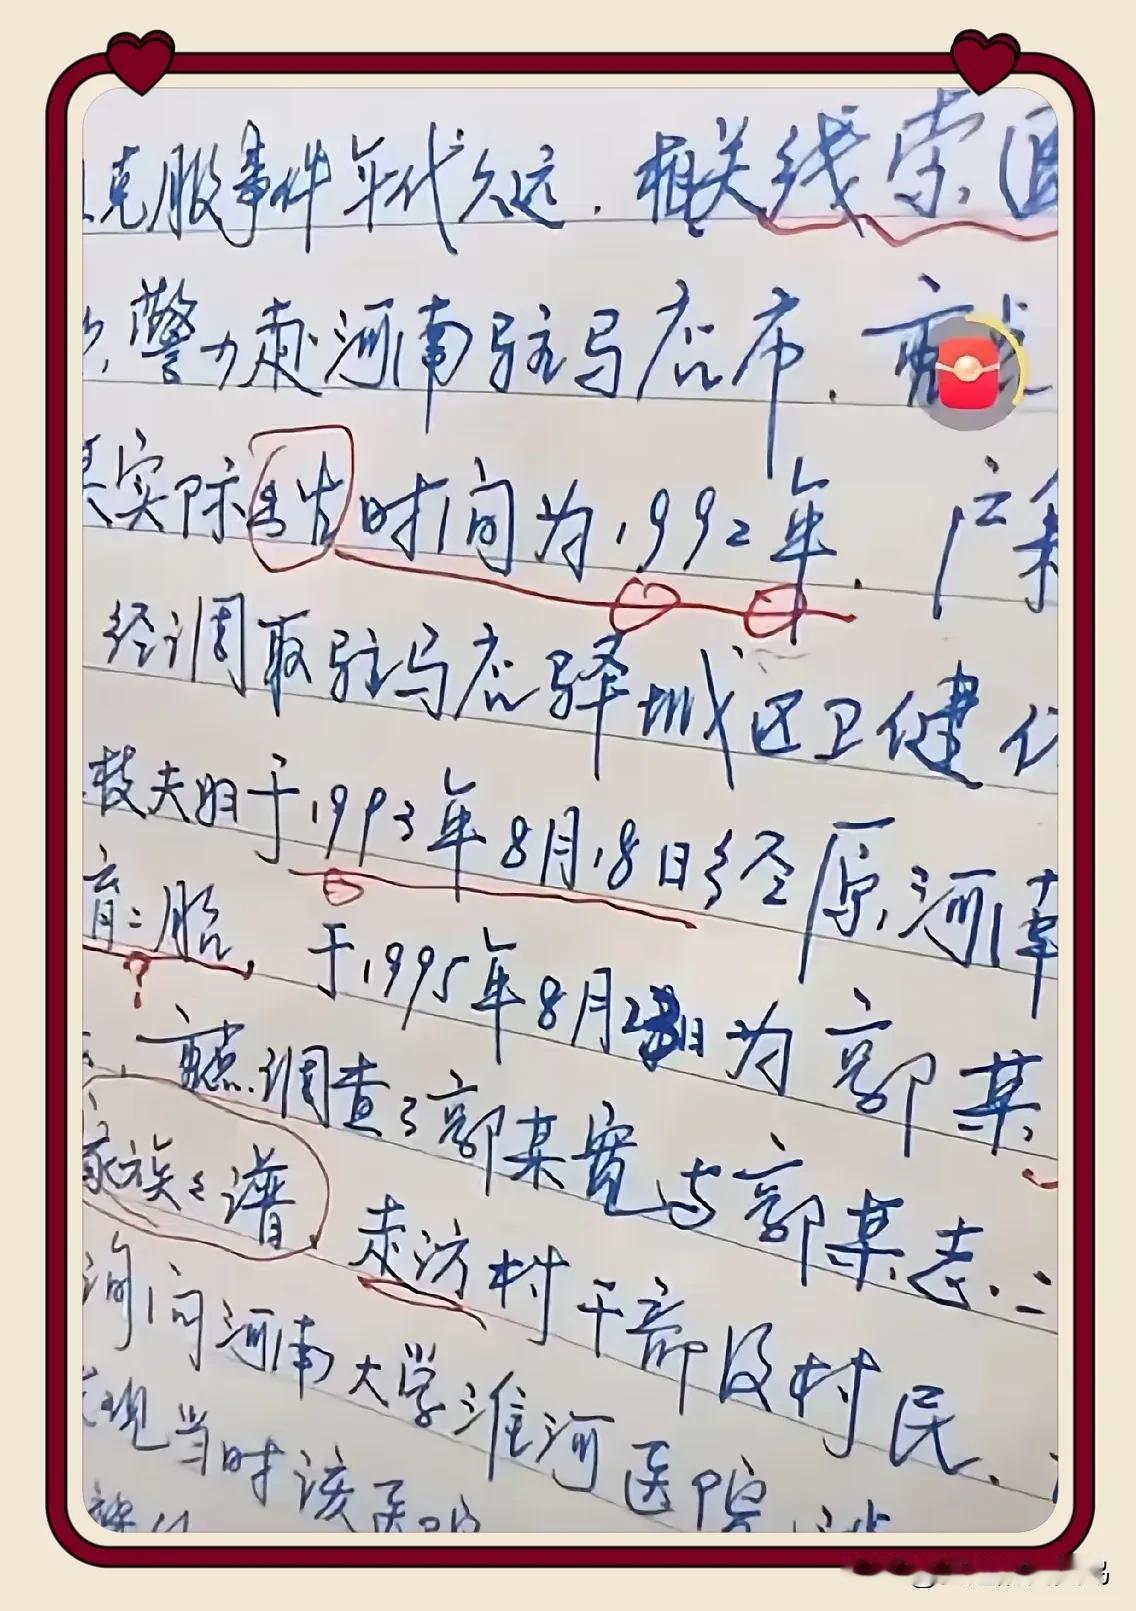 克服事件年代久远，相关线索
警力赴河南驻马店市，
实际出生时间为1992年，户
经调取驻马店驿城区卫健
枝夫妇于1993年8月18日经原河南
育二胎，于1995年8月 日为郭某
调查了郭某宽与郭某志，二
家族之谱 走访村干部及村民，
询问河南大学淮河医院
现当时该医院